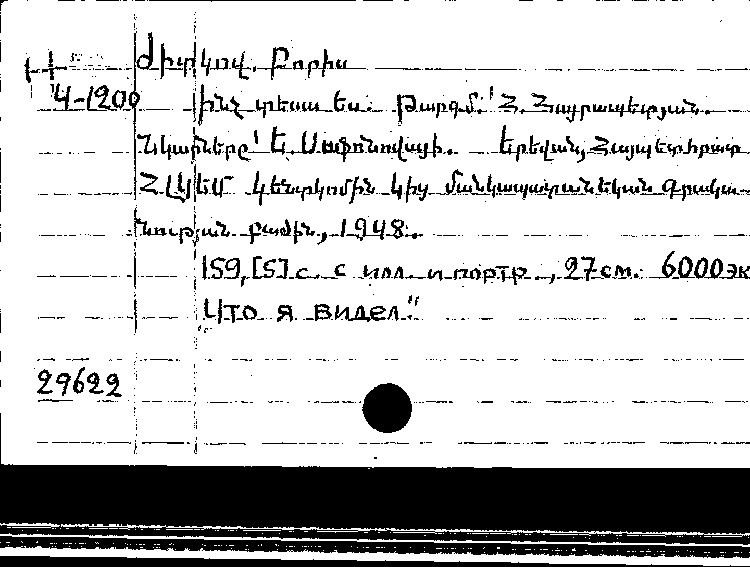 Ժիտկով, Բորիս
4-1200 Ինչ տեսա ես. Թարգմ.՝ Հ. Հայրապետյան.
Նկարները՝ Ե. Սաֆոնովայի. Երեվան, Հայպետհրատ
ՀԼԿԵՄ կենտկոմին կից մանկապատանեկան գրակա-
նության բաժին, 1948.
159, [5] с. с илл. и портр., 27 см. 6000 эк
"Что я видел"
29622